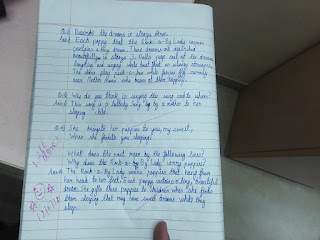 Q.2 Describe the dreams in stanza three.
Ans:2 Each poppy that the Rock-a-By Lady carries
contains a tiny dream. These dreams are described
beautifully in stanza 3. Dolls peep out of the dreams
laughing and singing while boats float on silvery streams.
The stars play peek-a-boo while fairies fly merrily
near Mother Moon who beams at them happily.
Q.3 Who do you think is singing the song and to whom?
Ans:3 This song is a lullaby sung by a mother to her
sleeping child.
Q.4 She bringeth her poppies to you, my sweet,
When she findeth you sleeping!
What does the poet mean by the following lines?
Why does the Rock-a-By Lady carry poppies?
Ans:4 The Rock-a-By Lady wears poppies that hang from
her head to her feet. Each poppy contains a tiny, beautiful
dream. She gifts these poppies to children when she finds
them sleeping that may have sweet dreams while they
sleep.